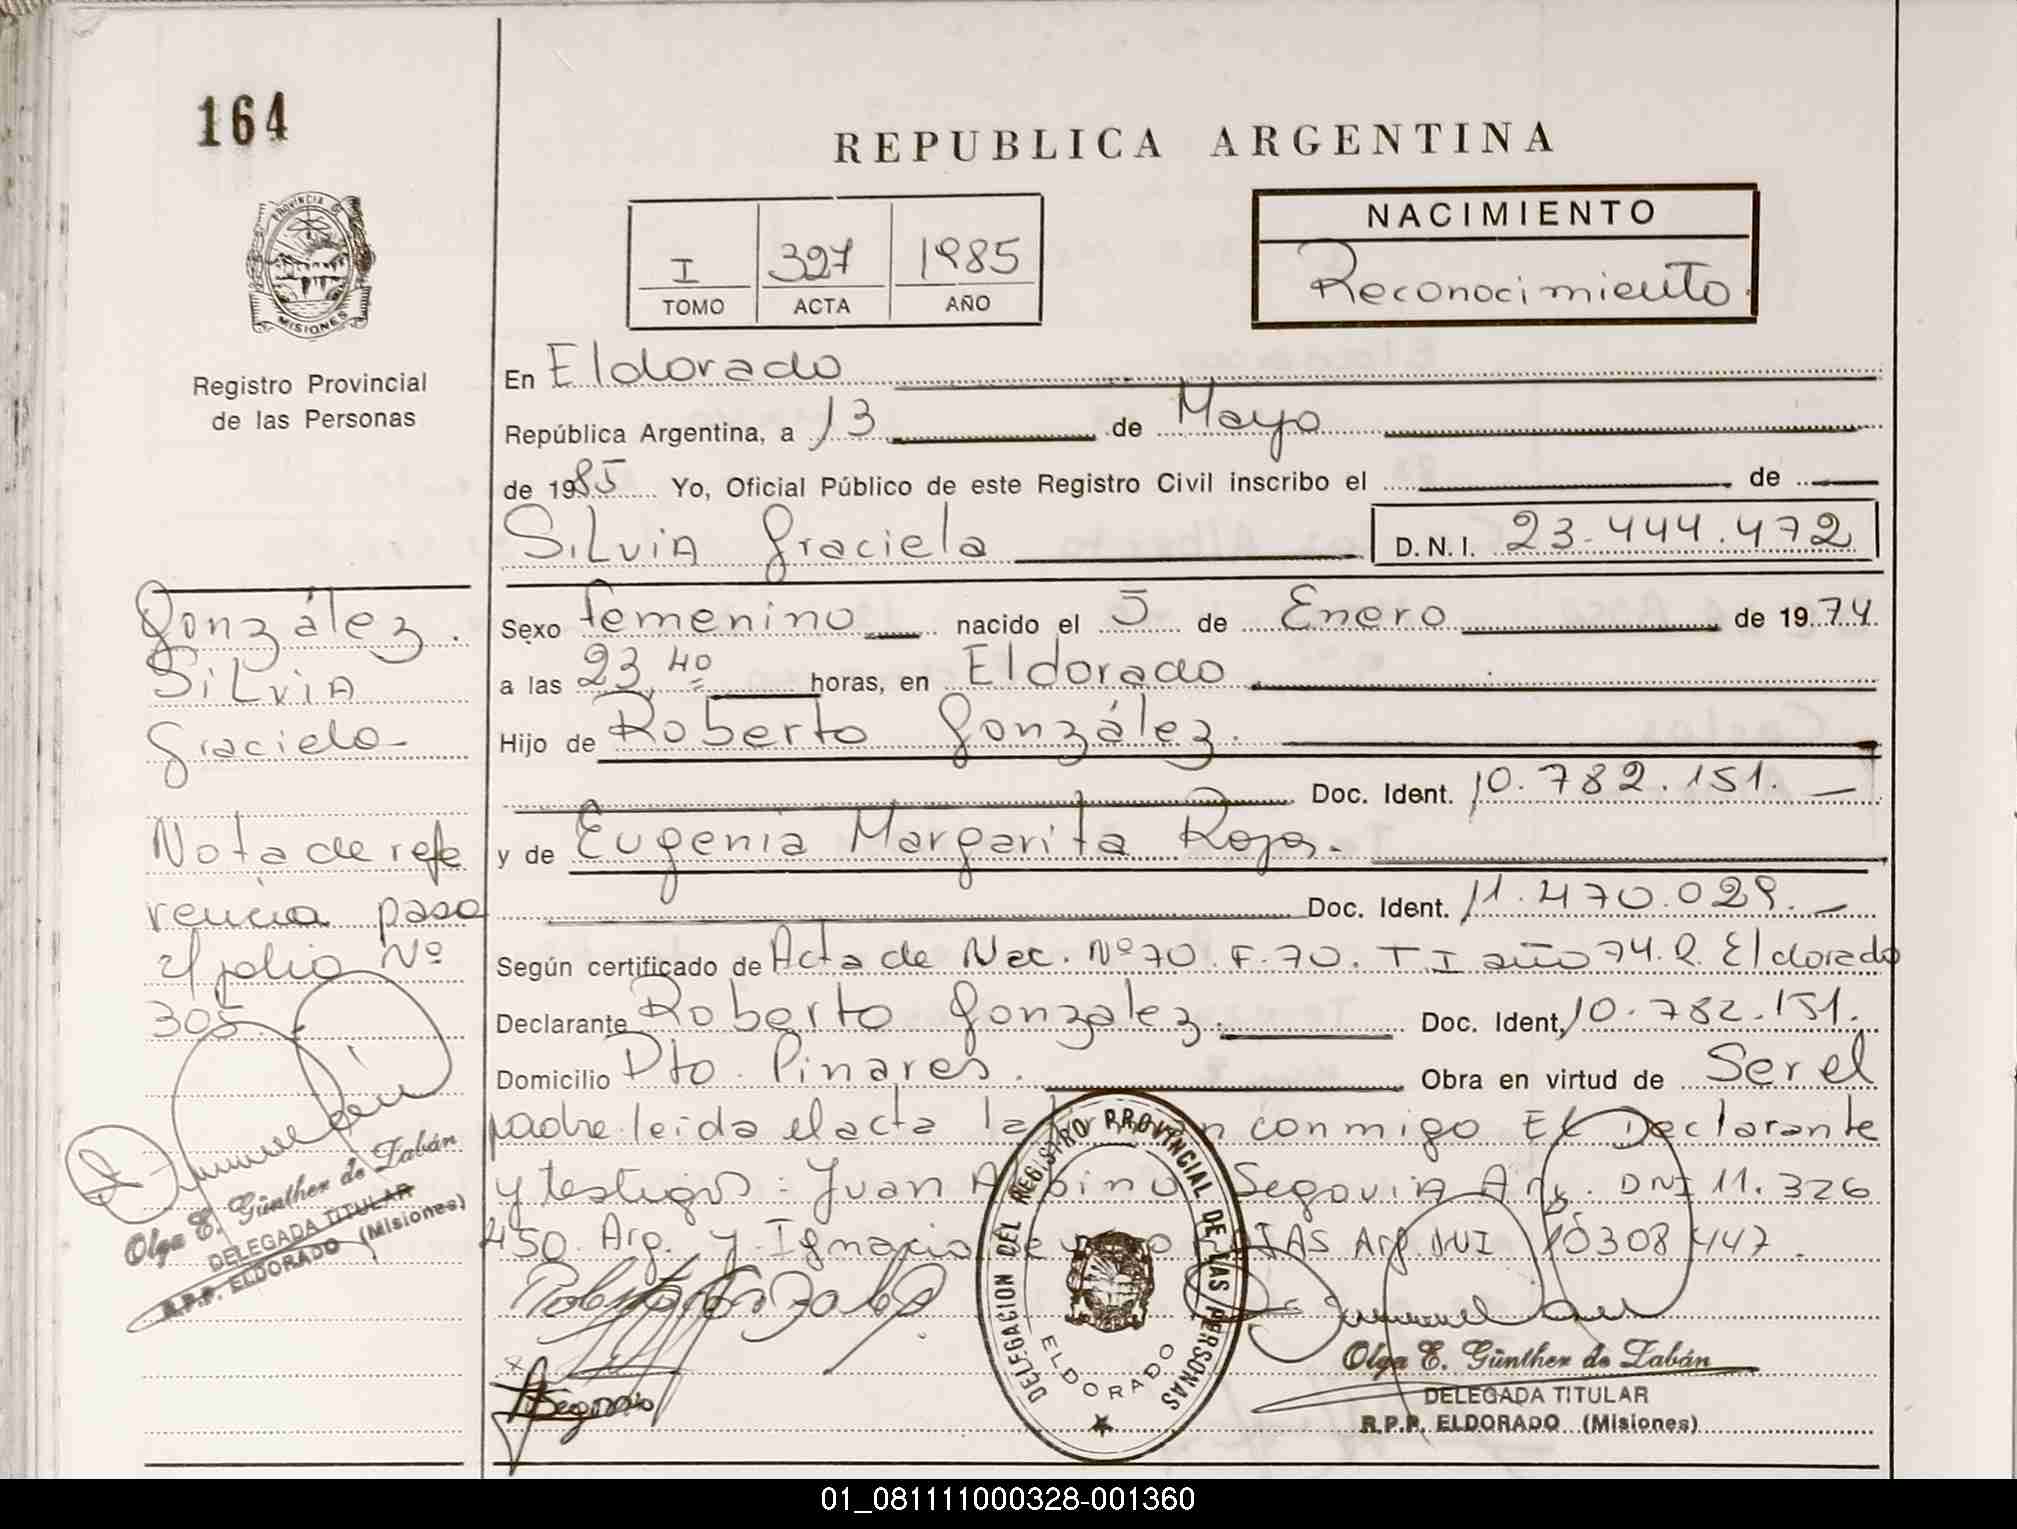 164
REPUBLICA ARGENTINA
PROVINCIA DE
MISIONES
Registro Provincial
de las Personas
I 327 1985
TOMO ACTA AÑO
NACIMIENTO
Reconocimiento
En Eldorado
República Argentina, a 13 de Mayo
de 1985 Yo, Oficial Público de este Registro Civil inscribo el de
Silvia Graciela D.N.I. 23.444.472
González
Silvia
Graciela
Nota de refe
rencia paso
al folio Nº
305.
Olga E. Günther de Zabán
DELEGADA TITULAR
R.P.P. ELDORADO (Misiones)
Sexo femenino nacido el 5 de Enero de 1974
a las 23,40 horas, en Eldorado
Hijo de Roberto González.
Doc. Ident. 10.782.151.
y de Eugenia Margarita Rojas.
Doc. Ident. 11.470.029.
Según certificado de Acta de Nac. Nº 70. F. 70. T. I año 74. R. Eldorado
Declarante Roberto Gonzalez. Doc. Ident. 10.782.151.
Domicilio Pto. Pinares. Obra en virtud de Ser el
padre leida el acta la conmigo El Declarante
y testigos: Juan Albino Segovia Arg. DNI 11.326
450. Arg. y Ignacio Arg. DNI 10308447.
Roberto Gonzalez
Segovia
DELEGACION DEL REGISTRO PROVINCIAL DE LAS PERSONAS
ELDORADO
Olga E. Günther de Zabán
DELEGADA TITULAR
R.P.P. ELDORADO (Misiones)
01_081111000328-001360